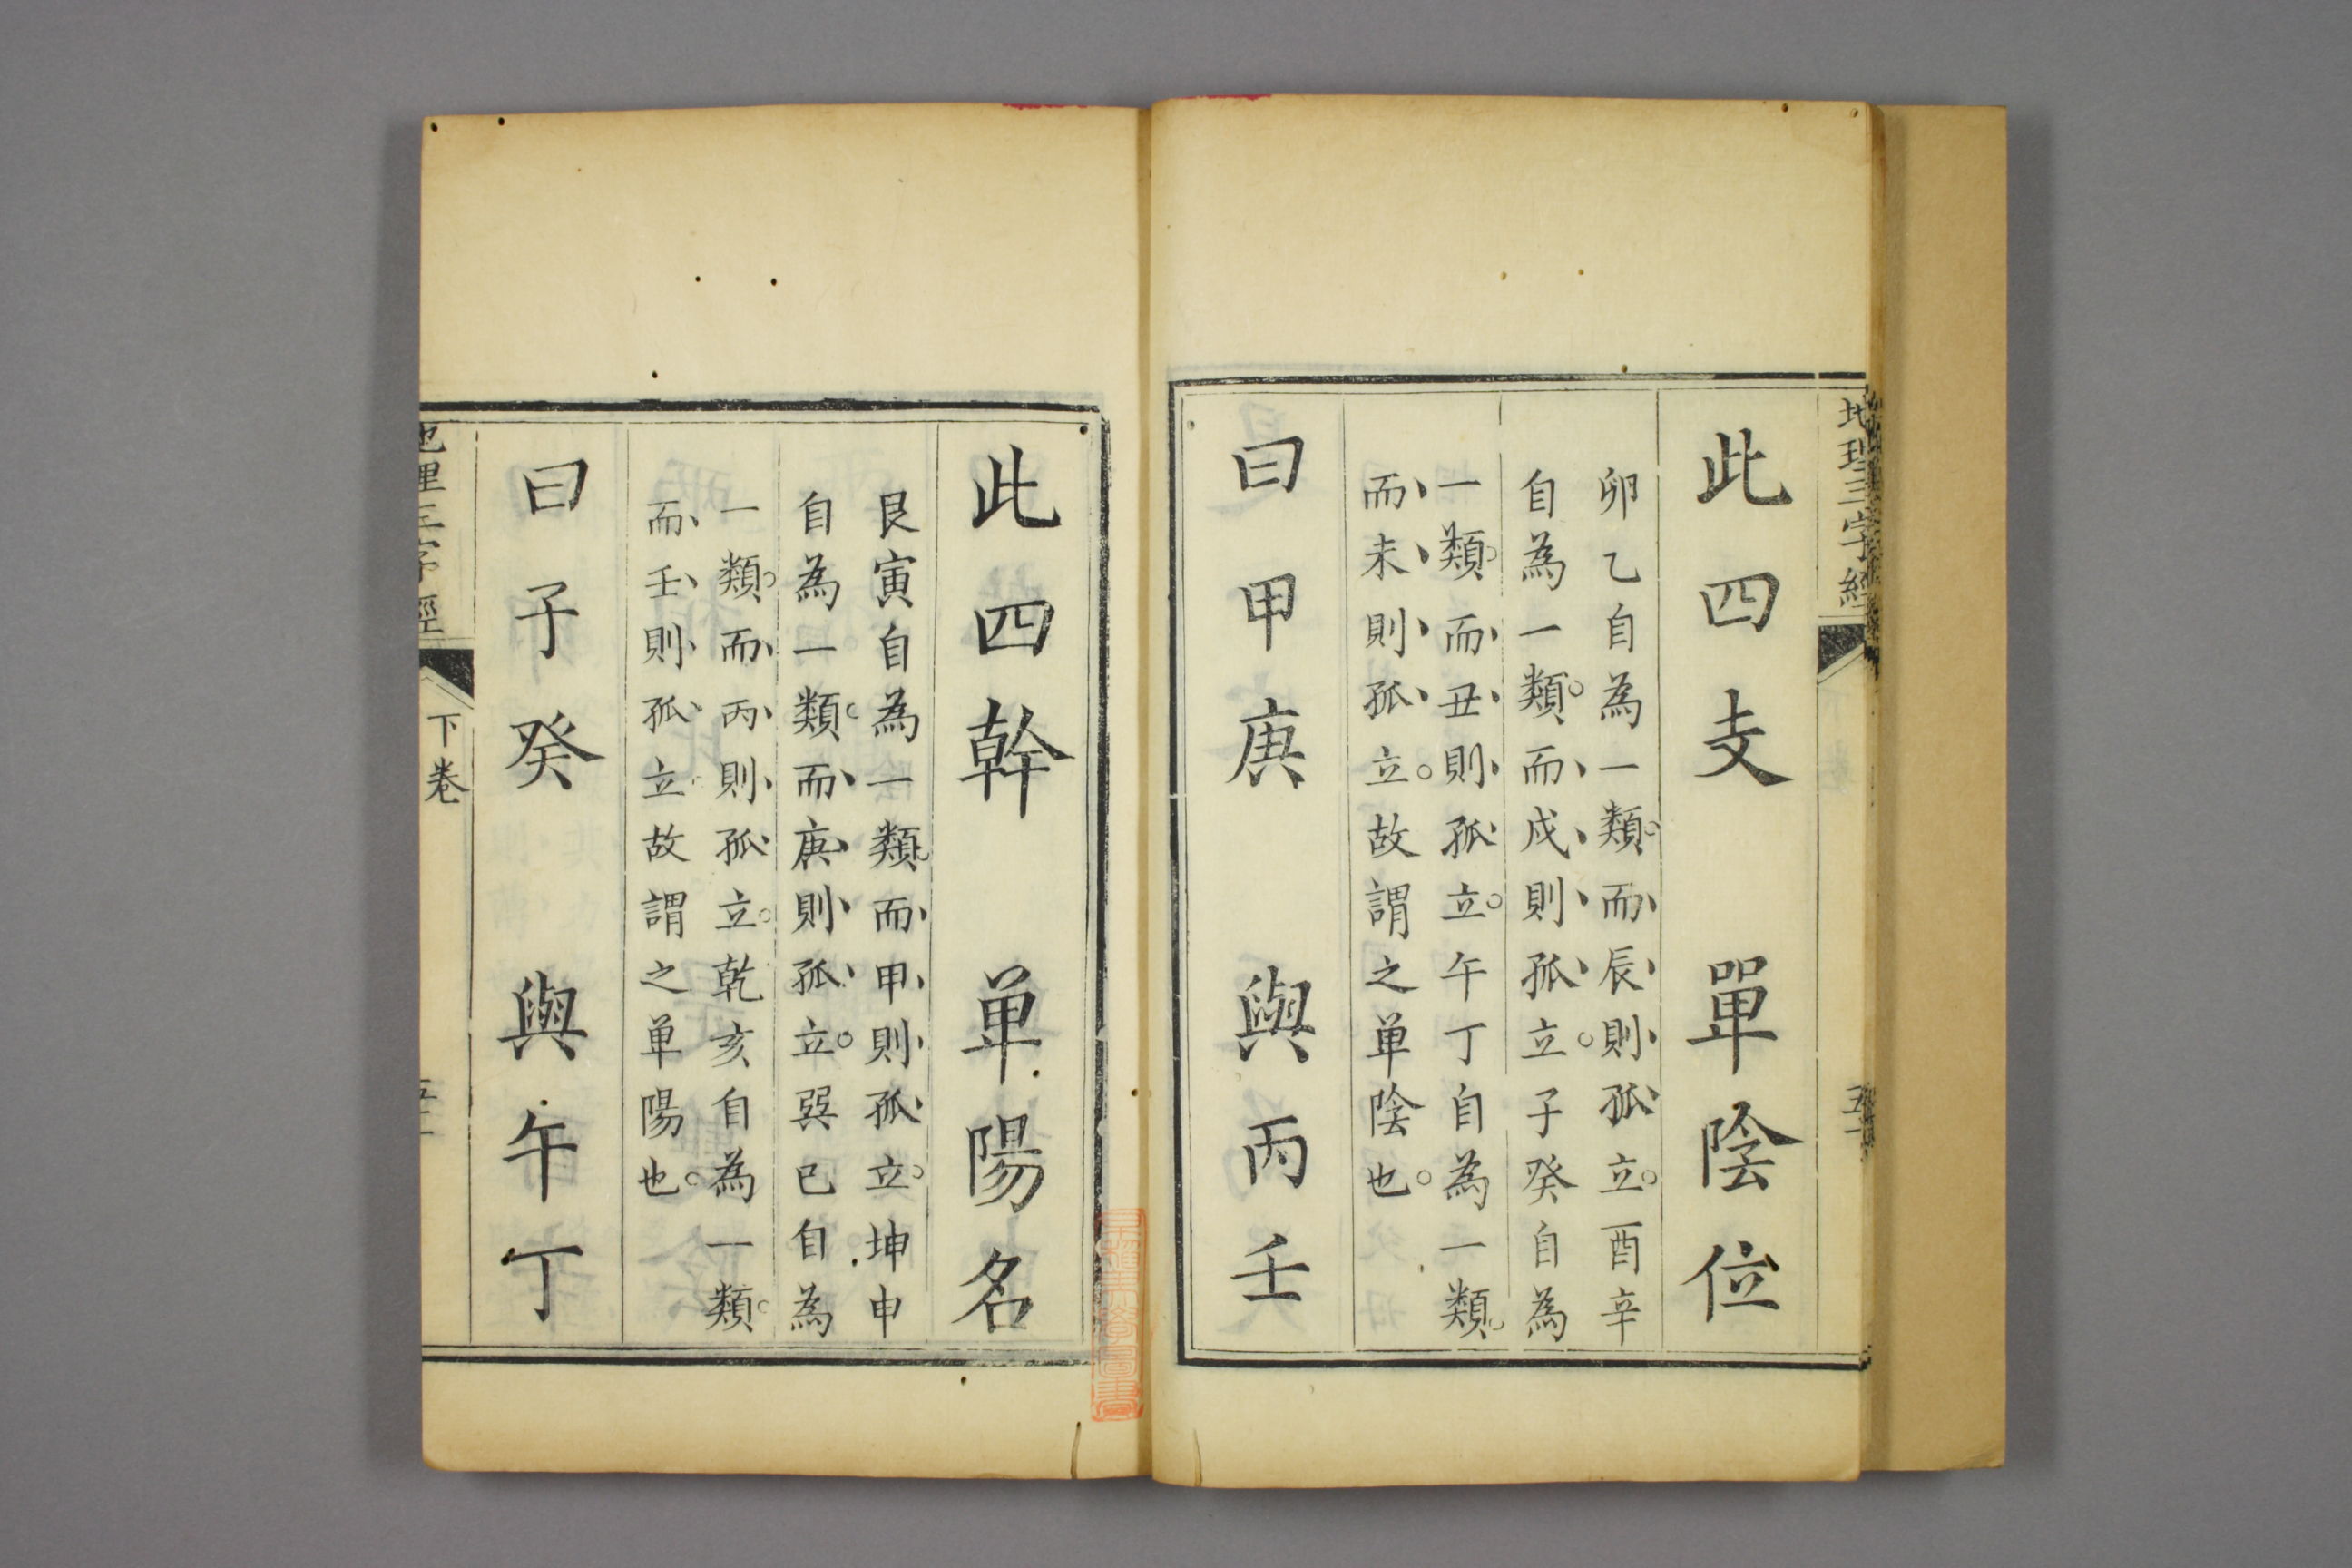 地理三字經
五十
此四支 單陰位
卯乙自為一類而辰則孤立酉辛
自為一類而戍則孤立子癸自為
一類而丑則孤立午丁自為一類
而未則孤立故謂之単陰也
曰甲庚 與丙壬
此四幹 单陽名
艮寅自為一類而甲則孤立坤申
自為一類而庚則孤立巽巳自為
一類而丙則孤立乾亥自為一類
而壬則孤立故謂之单陽也
曰子癸 與午丁
地理三字經
下卷